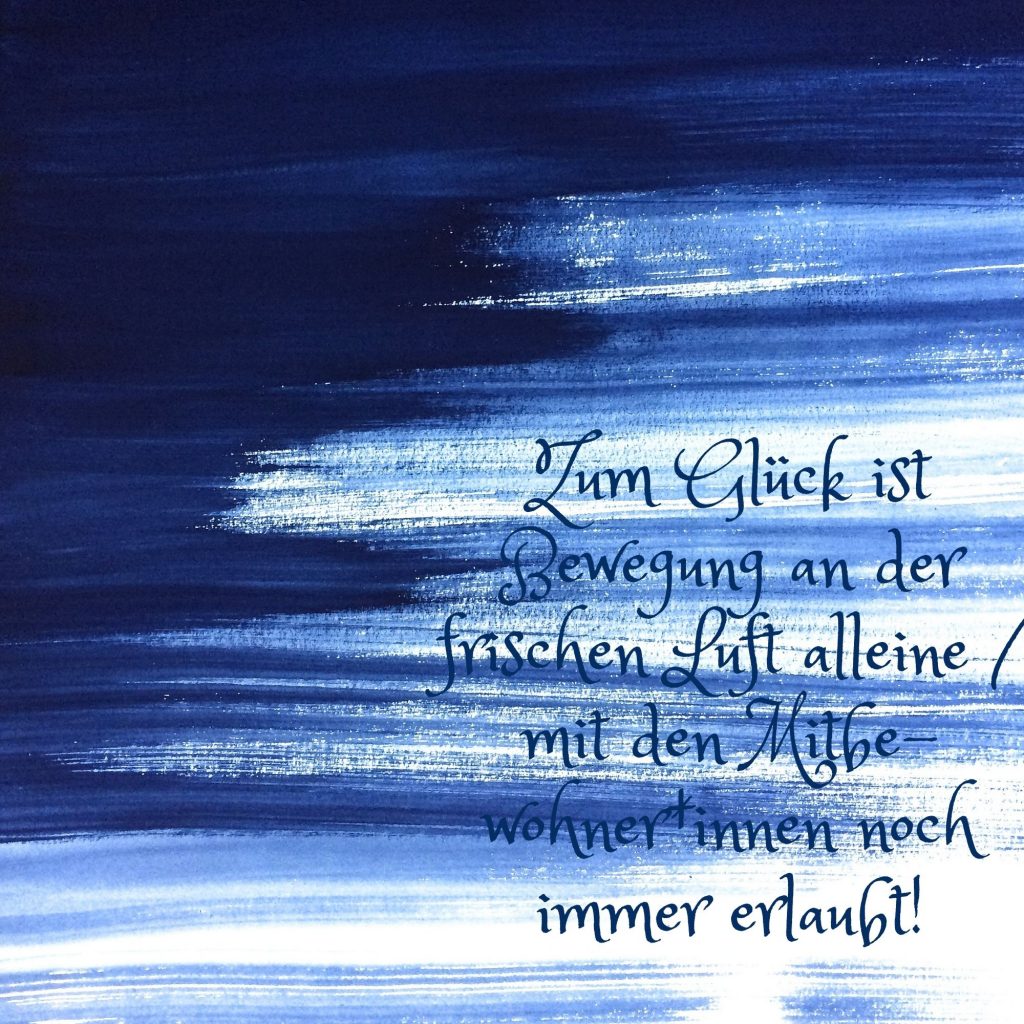 Zum Glück ist
Bewegung an der
frischen Luft alleine /
mit den Mitbe-
wohner*innen noch
immer erlaubt!